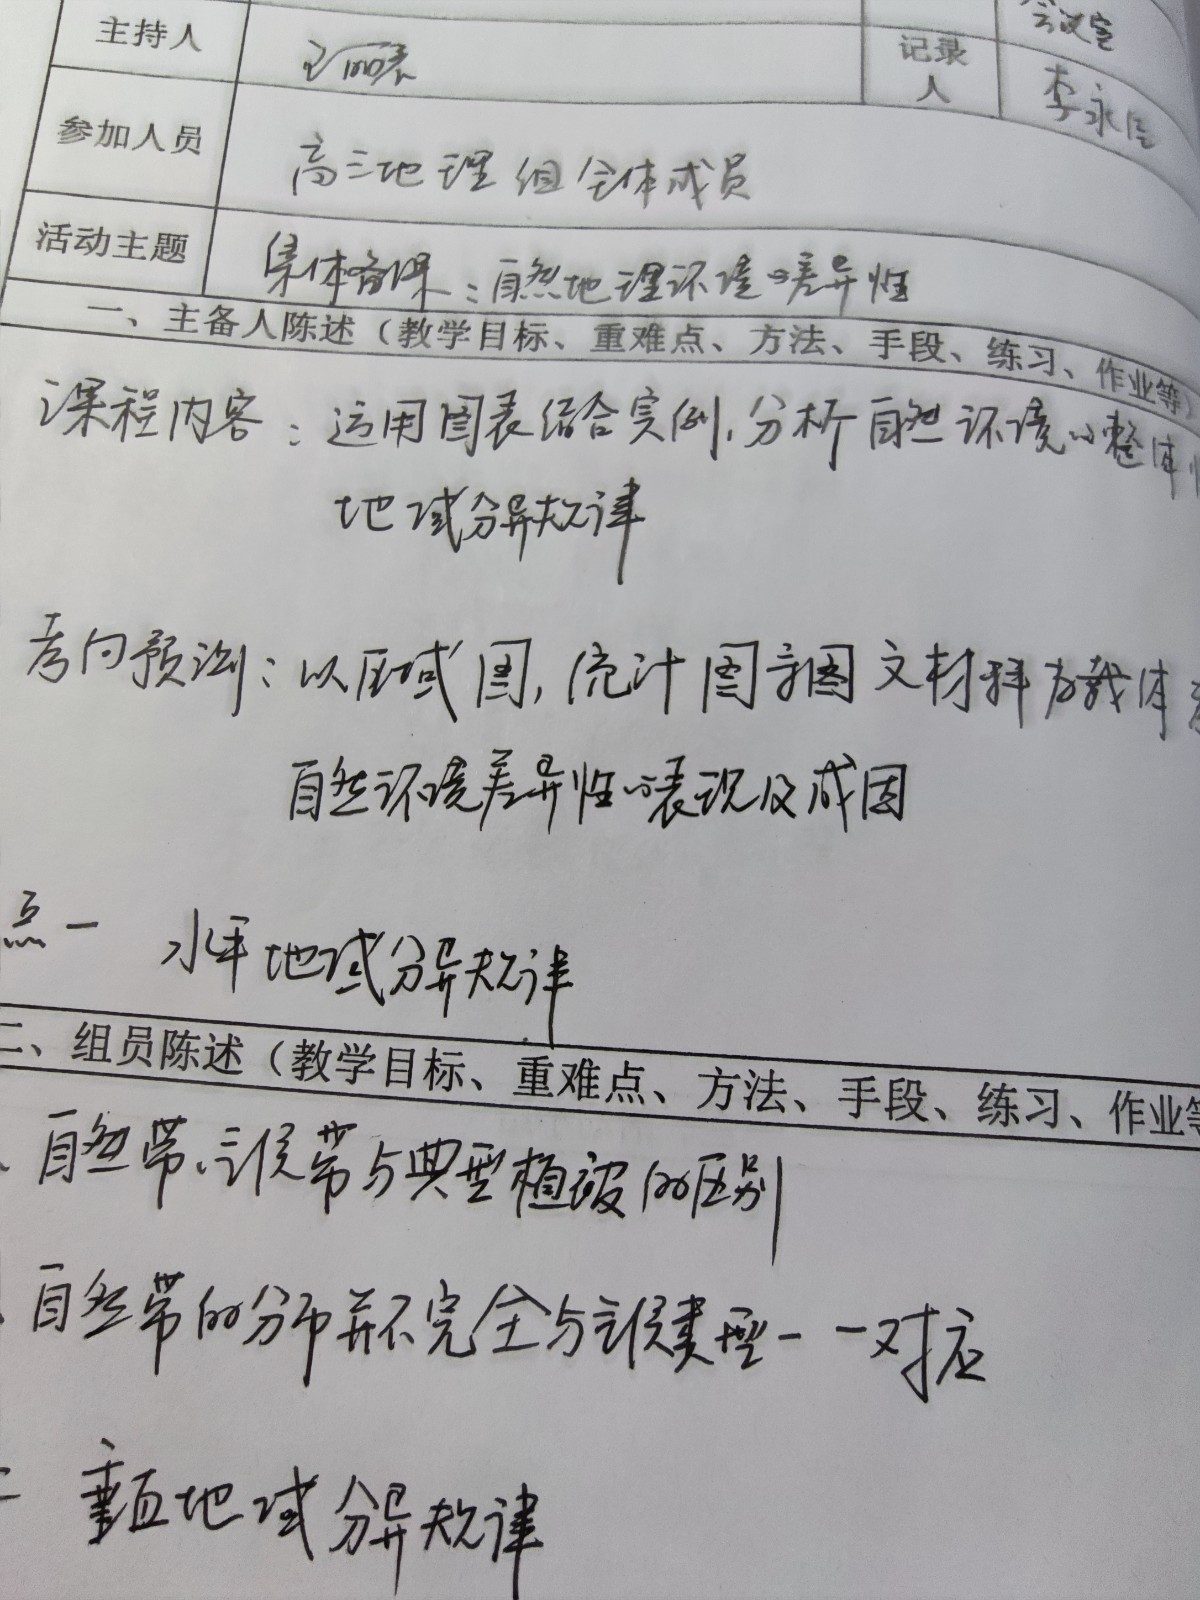 会议室
主持人 王丽 记录人 李永
参加人员 高三地理组全体成员
活动主题 集体备课：自然地理环境的差异性
一、主备人陈述（教学目标、重难点、方法、手段、练习、作业等）
课程内容：运用图表结合实例，分析自然环境的整体性
地域分异规律
考向预测：以区域图，统计图等图文材料为载体
自然环境差异性的表现及成因
点一 水平地域分异规律
二、组员陈述（教学目标、重难点、方法、手段、练习、作业等
自然带、气候带与典型植被的区别
自然带的分布并不完全与气候类型一一对应
二 垂直地域分异规律